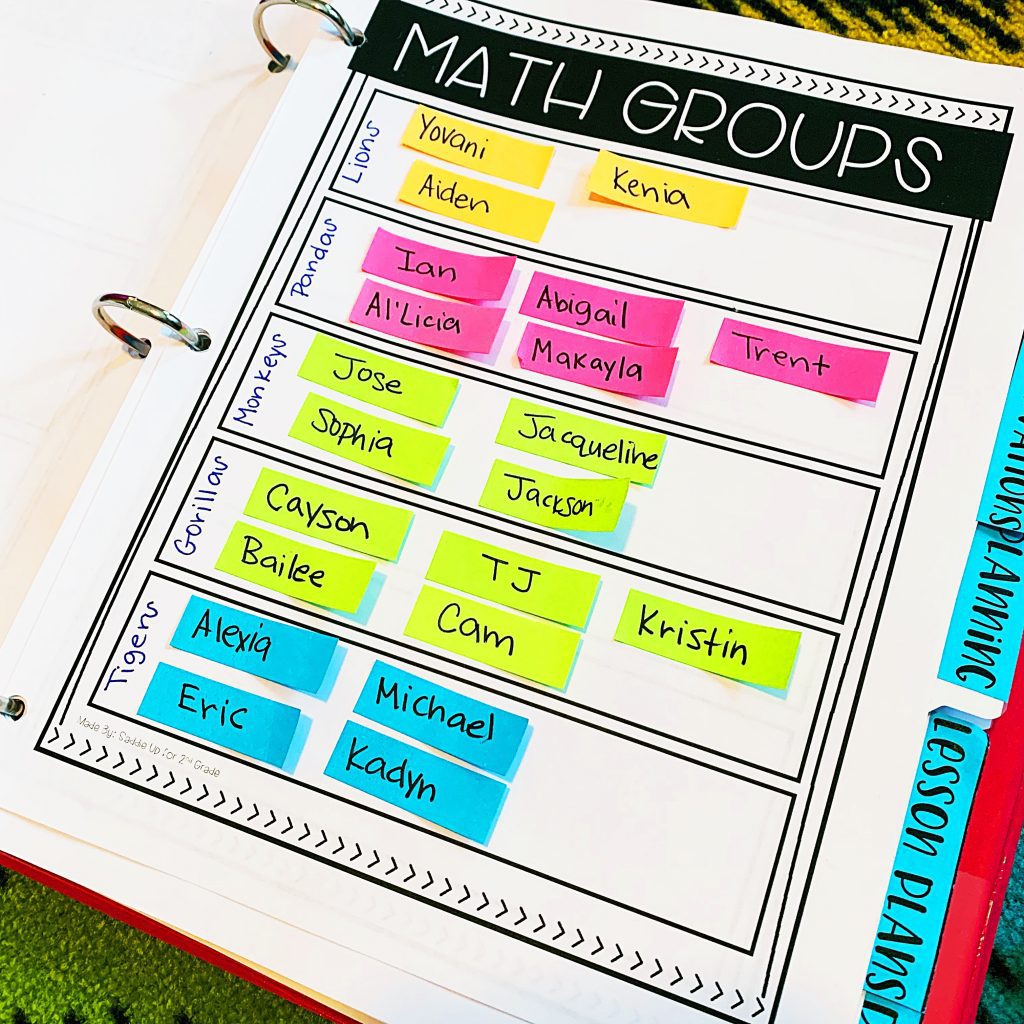 MATH GROUPS
Lions
Yovani
Kenia
Aiden
Pandas
Ian
Abigail
Trent
Al'Licia
Makayla
Monkeys
Jose
Jacqueline
Sophia
Jackson
Gorillas
Cayson
TJ
Kristin
Bailee
Cam
Tigers
Alexia
Michael
Eric
Kadyn
Made By: Saddle Up for 2nd Grade
PLANNING
Lesson PLANS